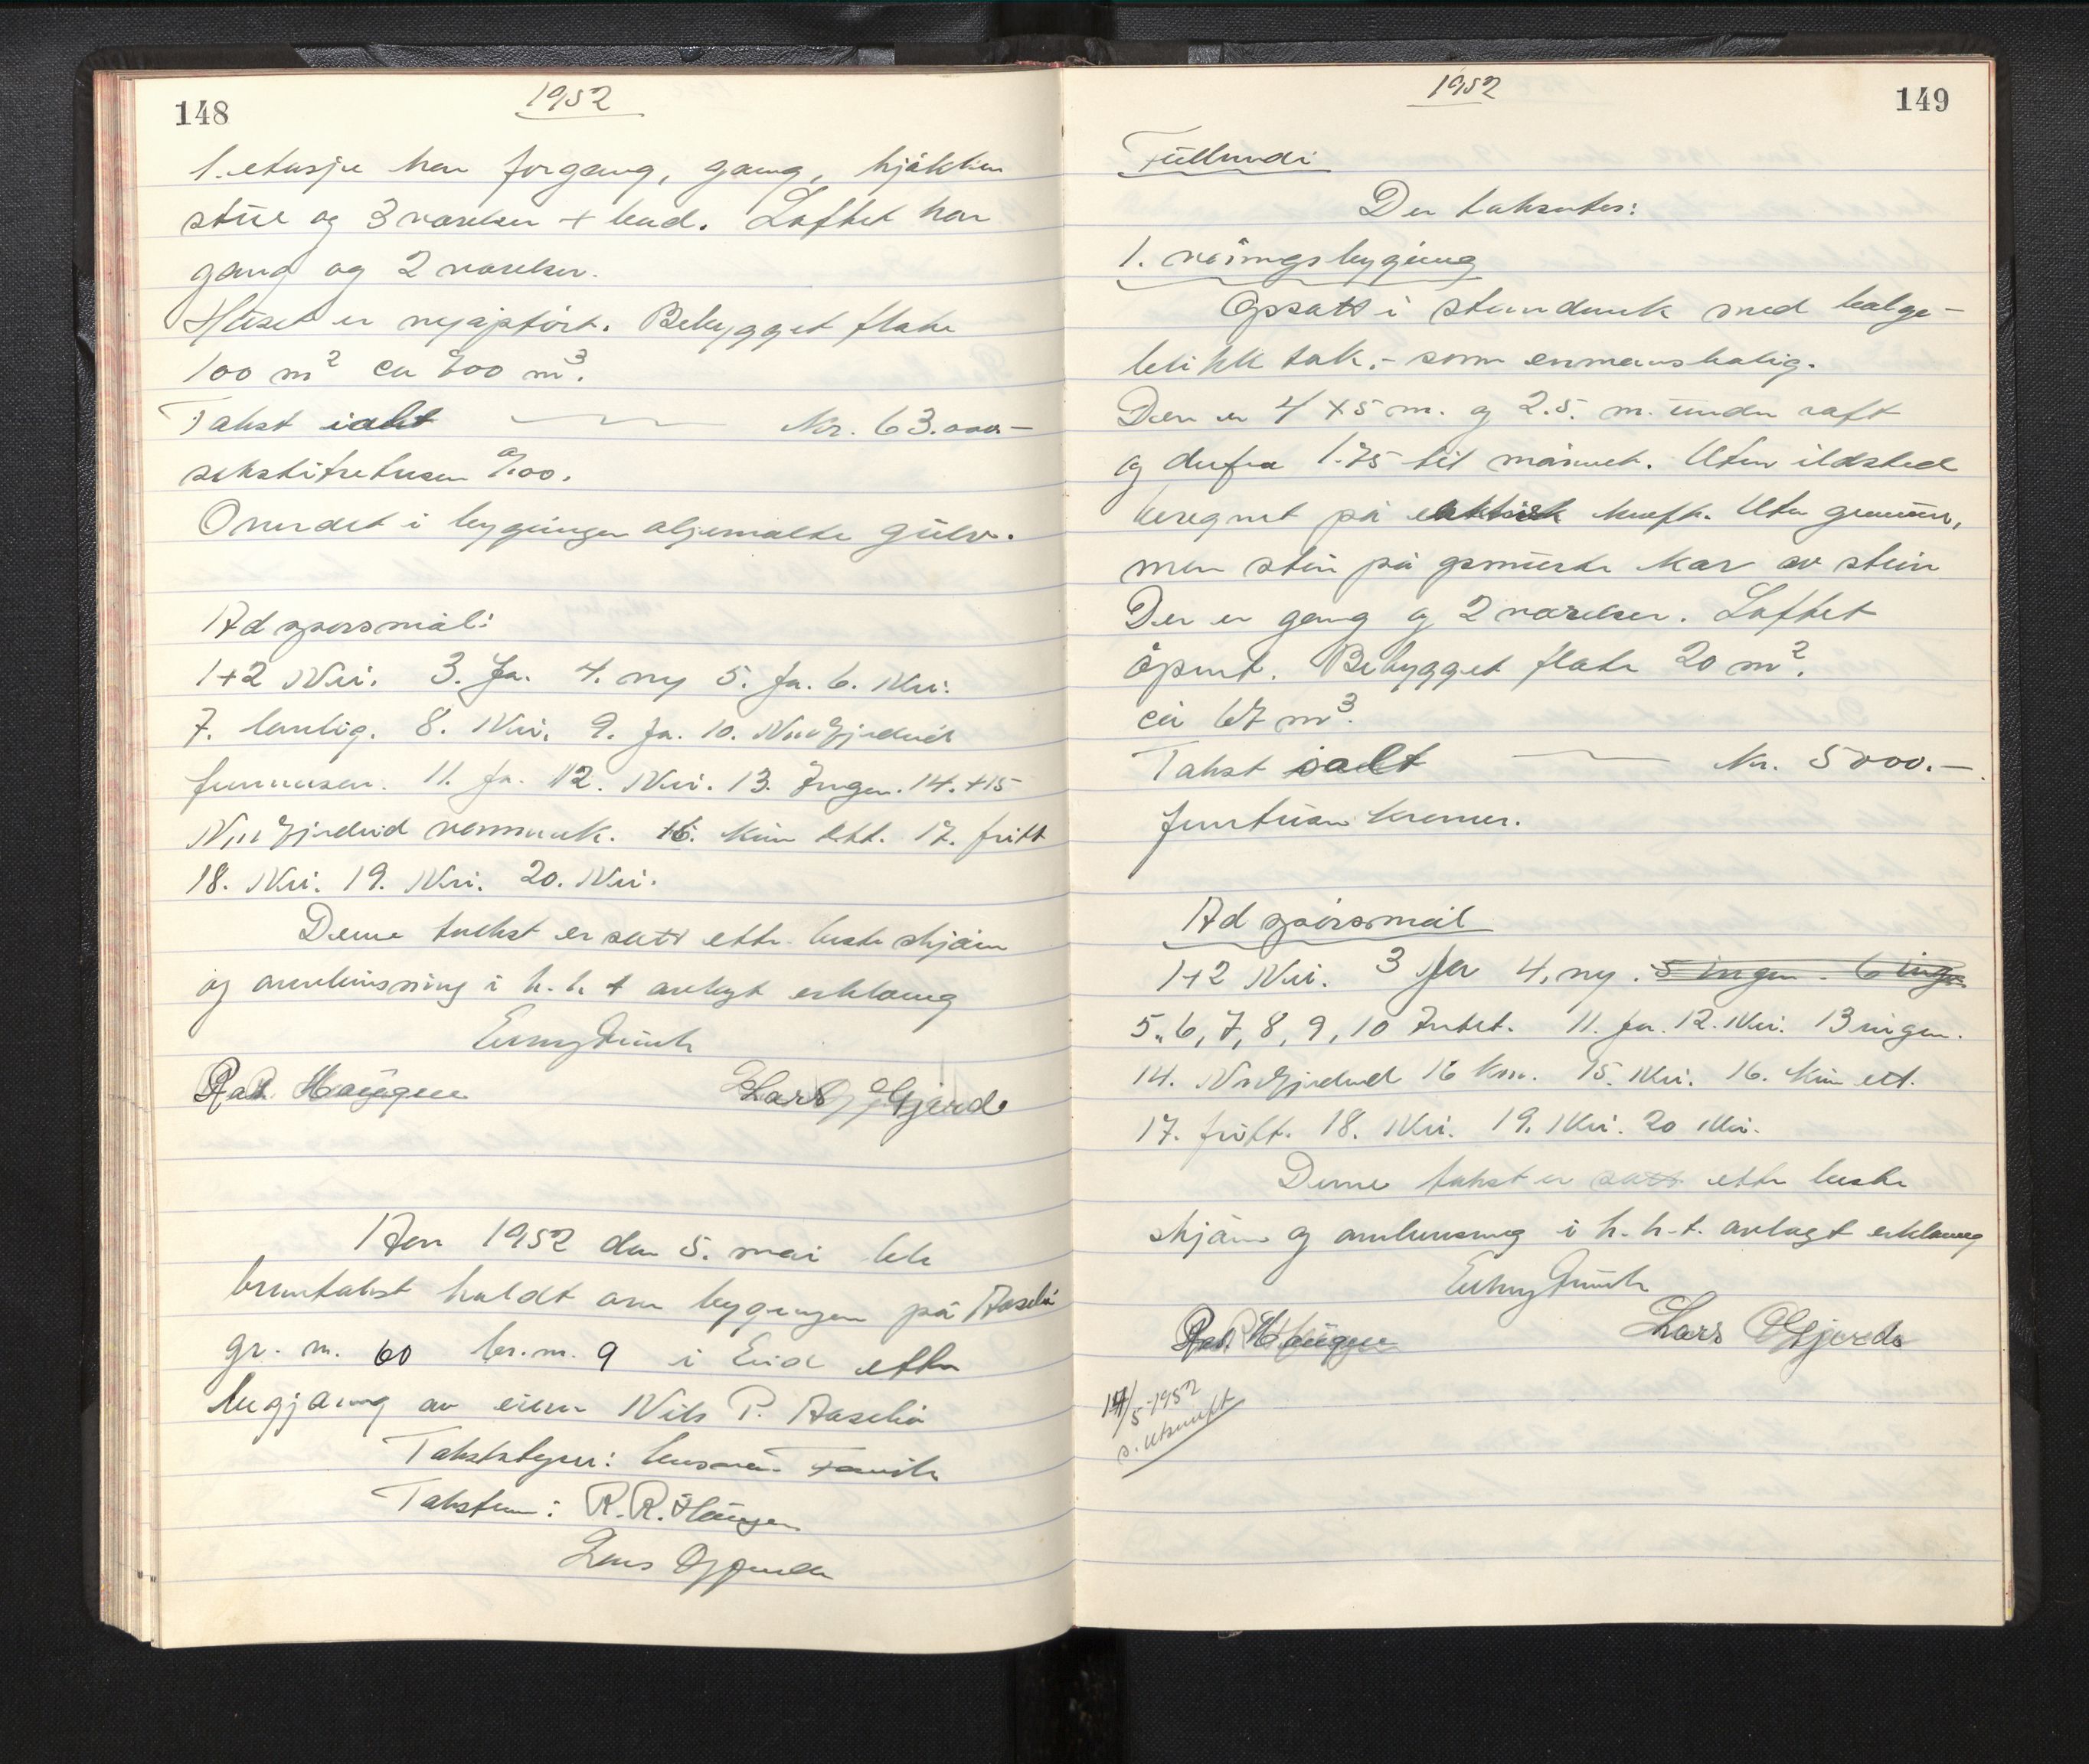 148
1952
1. etasje har forgang, gang, kjøkken
stue og 3 værelser + bad. Loftet har
gang og 2 værelser.
Huset er nyoppført. Bebygget flate
100 m² ca 500 m³.
Takst ialt Kr. 63.000.-
sekstitretusen 0/00.
Området i bygningen oljemalte gulv.
Ad spørsmål:
1+2 Nei. 3. Ja. 4. ny 5. Ja. 6. Nei.
7. landlig. 8. Nei. 9. Ja. 10. Nordfjordeid
11. Ja. 12. Nei. 13. Ingen. 14.+15
Nordfjordeid vannverk. 16. Kun ett. 17. fritt
18. Nei. 19. Nei. 20. Nei.
Denne takst er satt etter beste skjønn
og overbevisning i h. h. t avlagt erklæring
Ras. R. Haugen Lars O Gjerde
Aar 1952 den 5. mai ble
branntakst holdt over bygningen på Aaselia
gr. n. 60 br. n. 9 i Eid etter
begjæring av eieren Nils P. Aaselia
Takstbestyrer: lensm.
Takstmenn: R. R. Haugen
Lars O Gjerde
149
1952
Der takseres:
1. våningsbygning
Oppsatt i steindverk med bølge-
blikk tak, - som enmannsbolig.
Den er 4 x 5 m. og 2.5. m. under raft
og derfra 1.75 til mønnet. Uten ildsted
beregnet på elektrisk kraft. Uten grunnmur,
men står på grunnmurte kar av stein
Der er gang og 2 værelser. Loftet
åpent. Bebygget flate 20 m².
ca 67 m³.
Takst ialt Kr. 5000.-
femtusen kroner.
Ad spørsmål
1+2 Nei. 3 Ja 4. ny. 5 ingen. 6 ingen
5, 6, 7, 8, 9, 10 Intet. 11. Ja. 12. Nei. 13 ingen.
14. Nordfjordeid 16 km. 15. Nei. 16. Kun ett.
17. fritt. 18. Nei. 19. Nei. 20 Nei.
Denne takst er satt etter beste
skjønn og overbevisning i h. h. t. avlagt erklæring
Ras. R. Haugen Lars O Gjerde
14/5-1952
s. utskrift